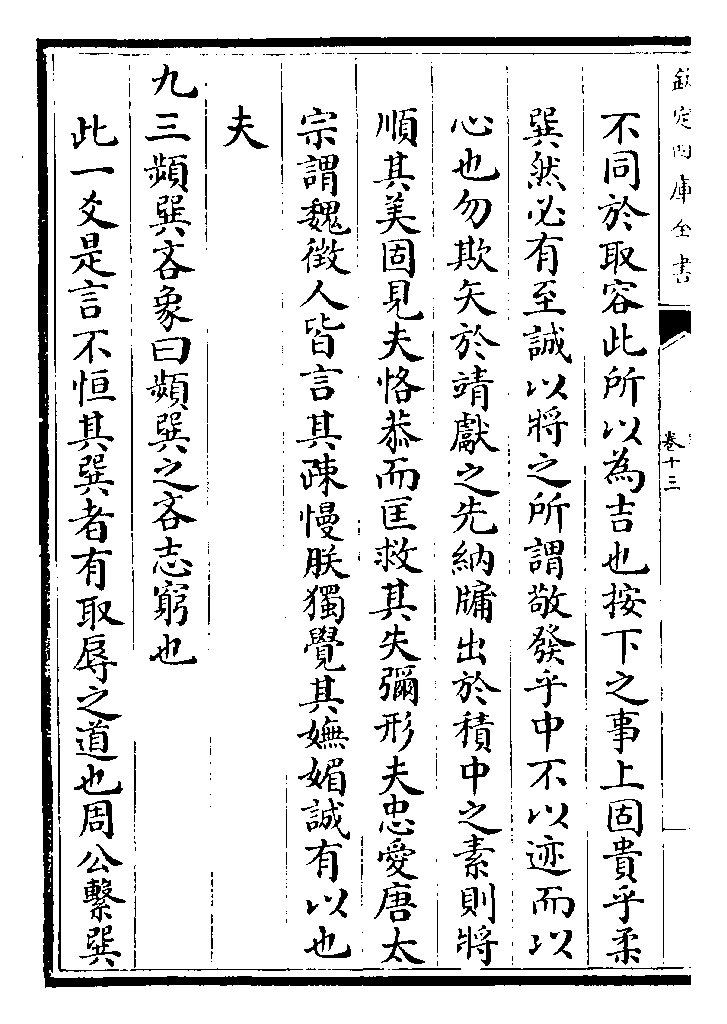 欽定四庫全書
卷十三
不同於取容此所以為吉也按下之事上固貴乎柔
巽然必有至誠以將之所謂敬發乎中不以迹而以
心也勿欺矢於靖獻之先納牖出於積中之素則將
順其美固見夫恪恭而匡救其失彌形夫忠愛唐太
宗謂魏徴人皆言其疎慢朕獨覺其嫵媚誠有以也
夫
九三頻巽吝象曰頻巽之吝志窮也
此一爻是言不恒其巽者有取辱之道也周公繫巽